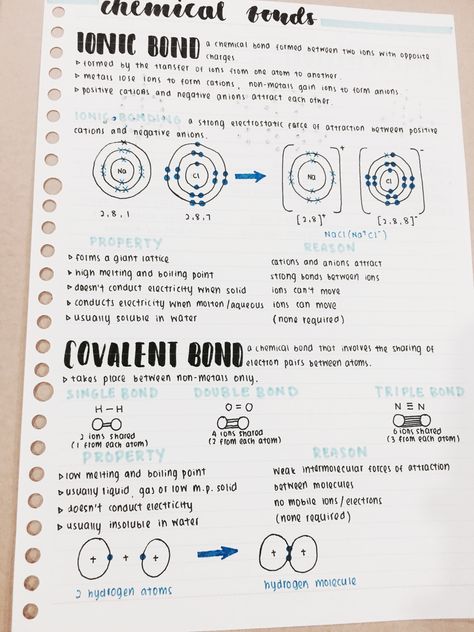 chemical bonds
IONIC BOND a chemical bond formed between two ions with opposite
charges
▹ formed by the transfer of ions from one atom to another.
▹ metals lose ions to form cations, non-metals gain ions to form anions
▹ positive cations and negative anions attract each other.
IONIC BONDING a strong electrostatic force of attraction between positive
cations and negative anions.
Na Cl Na + Cl -
2,8,1 2,8,7 [2,8]⁺ [2,8,8]⁻
NaCl (Na⁺Cl⁻)
PROPERTY REASON
▹ forms a giant lattice cations and anions attract
▹ high melting and boiling point strong bonds between ions
▹ doesn't conduct electricity when solid ions can't move
▹ conducts electricity when molton/aqueous ions can move
▹ usually soluble in water (none required)
COVALENT BOND a chemical bond that involves the sharing of
electron pairs between atoms.
▹ takes place between non-metals only.
SINGLE BOND DOUBLE BOND TRIPLE BOND
H–H O=O N≡N
2 ions shared 4 ions shared 6 ions shared
(1 from each atom) (2 from each atom) (3 from each atom)
PROPERTY REASON
▹ low melting and boiling point weak intermolecular forces of attraction
▹ usually liquid, gas or low m.p. solid between molecules
▹ doesn't conduct electricity no mobile ions/electrons
▹ usually insoluble in water (none required)
+ + + +
2 hydrogen atoms hydrogen molecule